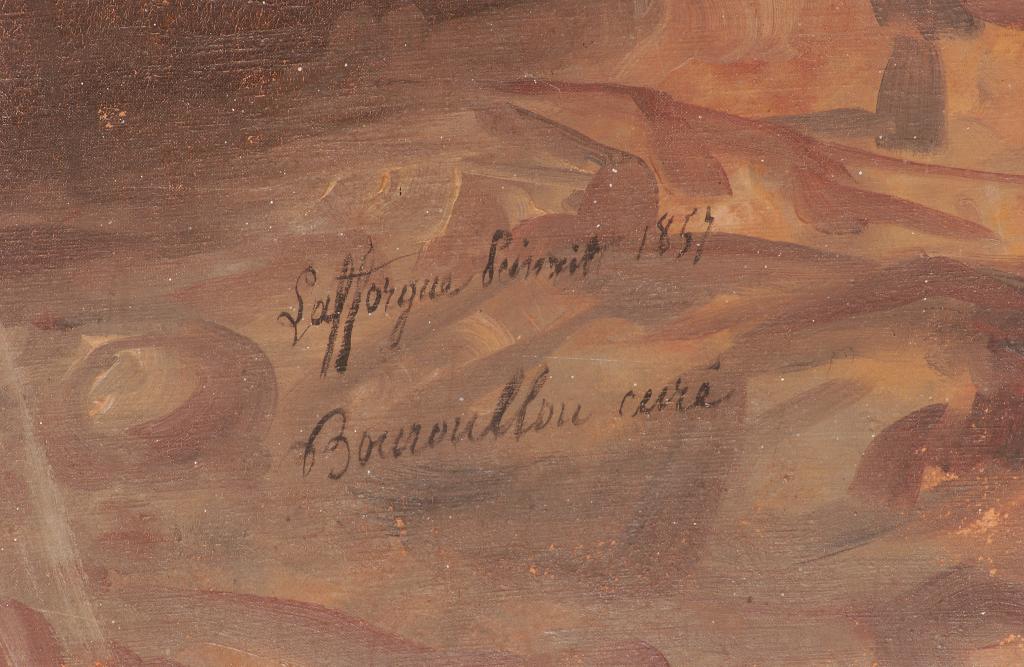 Lafforgue Peinxit 1857
Bourouillou curé